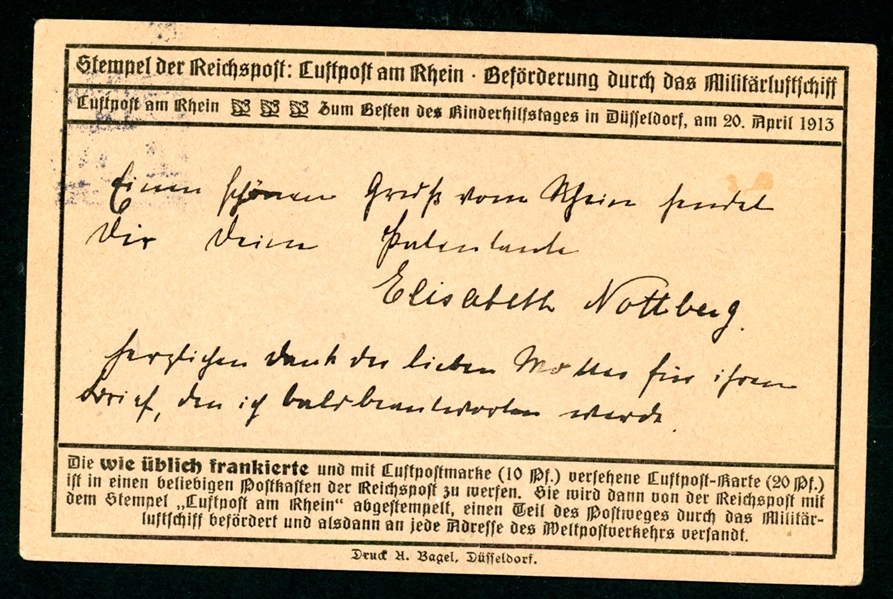 Stempel der Reichspost: Luftpost am Rhein · Beförderung durch das Militärluftschiff
Luftpost am Rhein Zum Besten des Kinderhilfstages in Düsseldorf, am 20. April 1913
Einen schönen Gruß vom Rhein sendet
Dir Deine Patentante
Elisabeth Nottberg.
Herzlichen Dank der lieben Mutter für ihren
Brief, den ich bald beantworten werde.
Die wie üblich frankierte und mit Luftpostmarke (10 Pf.) versehene Luftpost-Karte (20 Pf.)
ist in einen beliebigen Postkasten der Reichspost zu werfen. Sie wird dann von der Reichspost mit
dem Stempel „Luftpost am Rhein“ abgestempelt, einen Teil des Postweges durch das Militär-
luftschiff befördert und alsdann an jede Adresse des Weltpostverkehrs versandt.
Druck A. Bagel, Düsseldorf.